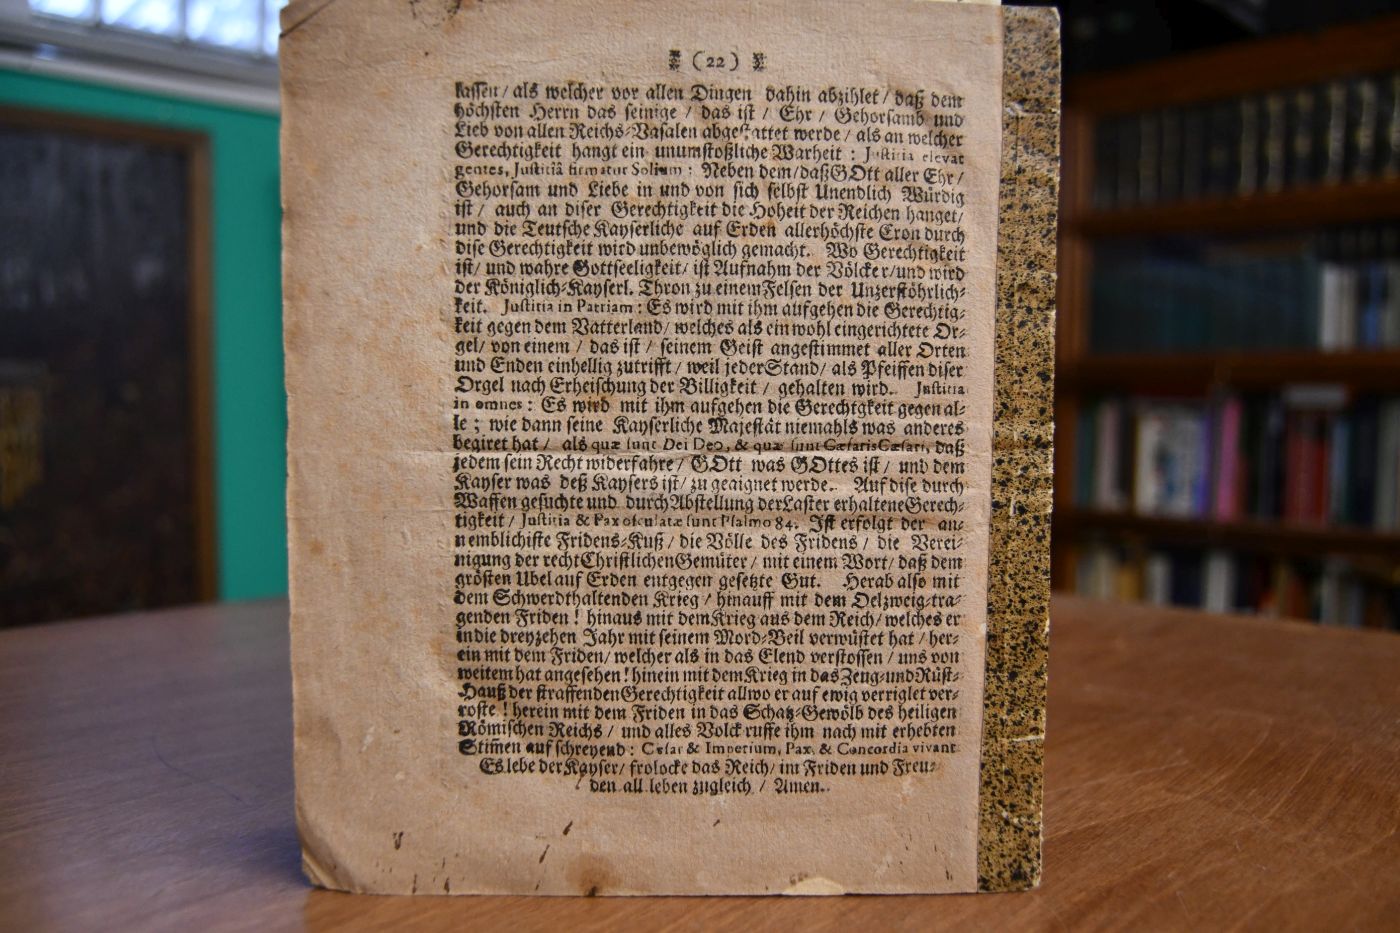 (22)
lassen / als welcher vor allen Dingen dahin abzihlet / daß dem
höchsten Herrn das seinige / das ist / Ehr / Gehorsamb und
Lieb von allen Reichs-Vasalen abgestattet werde / als an welcher
Gerechtigkeit hangt ein unumstoßliche Warheit : Justitia elevat
gentes, Justitiâ firmatur Solium : Neben dem / daß GOtt aller Ehr /
Gehorsam und Liebe in und von sich selbst Unendlich Würdig
ist / auch an diser Gerechtigkeit die Hoheit der Reichen hanget /
und die Teutsche Kayserliche auf Erden allerhöchste Cron durch
dise Gerechtigkeit wird unbewöglich gemacht. Wo Gerechtigkeit
ist / und wahre Gottseeligkeit / ist Aufnahm der Völcker / und wird
der Königlich-Kayserl. Thron zu einem Felsen der Unzerstöhrlich-
keit. Justitia in Patriam : Es wird mit ihm aufgehen die Gerechtig-
keit gegen dem Vatterland / welches als ein wohl eingerichtete Or-
gel / von einem / das ist / seinem Geist angestimmet aller Orten
und Enden einhellig zutrifft / weil jeder Stand / als Pfeiffen diser
Orgel nach Erheischung der Billigkeit / gehalten wird. Justitia
in omnes : Es wird mit ihm aufgehen die Gerechtgkeit gegen al-
le ; wie dann seine Kayserliche Majestät niemahls was anderes
begiret hat / als quæ sunt Dei Deo, & quæ sunt Cæsaris Cæsari, daß
jedem sein Recht widerfahre / GOtt was GOttes ist / und dem
Kayser was deß Kaysers ist / zu geaignet werde. Auf dise durch
Waffen gesuchte und durch Abstellung der Laster erhaltene Gerech-
tigkeit / Justitia & Pax osculatæ sunt Psalmo 84. Ist erfolgt der an-
nemblichiste Fridens-Kuß / die Völle des Fridens / die Verei-
nigung der recht Christlichen Gemüter / mit einem Wort / daß dem
grösten Ubel auf Erden entgegen gesetzte Gut. Herab also mit
dem Schwerdthaltenden Krieg / hinauff mit dem Oelzweig-tra-
genden Friden ! hinaus mit dem Krieg aus dem Reich / welches er
in die dreyzehen Jahr mit seinem Mord-Beil verwüstet hat / her-
ein mit dem Friden / welcher als in das Elend verstossen / uns von
weitem hat angesehen ! hinein mit dem Krieg in das Zeug- und Rüst-
Hauß der straffenden Gerechtigkeit allwo er auf ewig verriglet ver-
roste ! herein mit dem Friden in das Schatz-Gewölb des heiligen
Römischen Reichs / und alles Volck ruffe ihm nach mit erhebten
Stim̃en auf schreyend : Cæsar & Imperium, Pax, & Concordia vivant
Es lebe der Kayser / frolocke das Reich / im Friden und Freu-
den all leben zugleich / Amen.